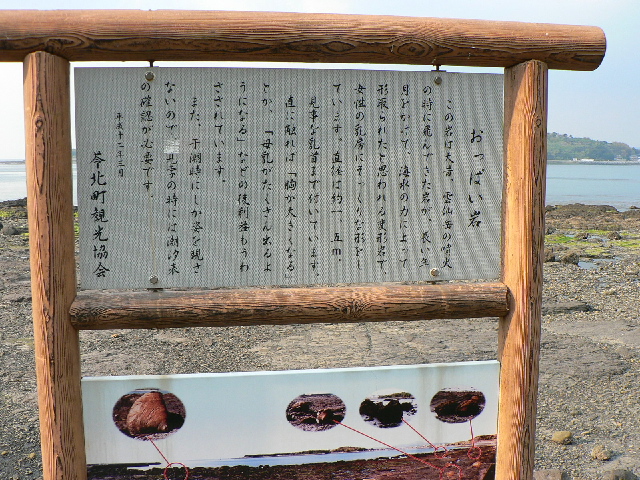 おっぱい岩
この岩は大昔、雲仙岳の噴火
の時に飛んできた岩が、長い年
月をかけて、海水の力によって
形取られたと思われる変形岩で、
女性の乳房にそっくりな形をし
ています。直径は約一．五ｍ．
見事な乳首まで付いています。
直に触れば「胸が大きくなる」
とか、「母乳がたくさん出るよ
うになる」などの後利益もうわ
さされています。
また、干潮時にしか姿を現さ
ないので、見学の時には潮汐表
の確認が必要です。
平成十二年三月
苓北町観光協会